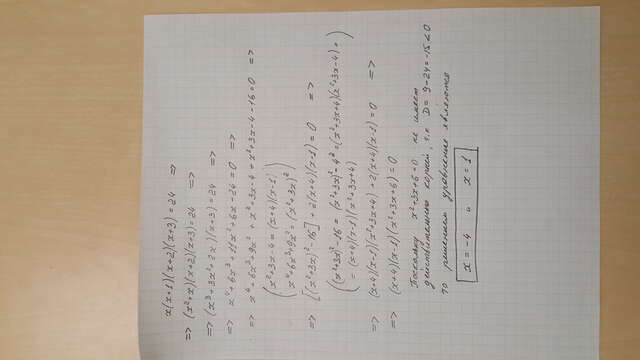 x(x+1)(x+2)(x+3) = 24 =>
=> (x²+x)(x+2)(x+3) = 24 =>
=> (x³+3x²+2x)(x+3) = 24 =>
=> x⁴+6x³+11x²+6x-24 = 0 =>
=> x⁴+6x³+9x²+x²+3x-4+x²+3x-4-16=0 =>
(x²+3x-4 = (x+4)(x-1)
x⁴+6x³+9x² = (x²+3x)²)
=> [(x²+3x)²-16] + 2(x+4)(x-1) = 0 =>
((x²+3x)²-16 = (x²+3x)²-4² = (x²+3x+4)(x²+3x-4) =
= (x+4)(x-1)(x²+3x+4))
=> (x+4)(x-1)(x²+3x+4) + 2(x+4)(x-1) = 0 =>
=> (x+4)(x-1)(x²+3x+6) = 0
Поскольку x²+3x+6=0 не имеет
действительных корней, т.к. D = 9-24=-15<0
то решением уравнения являются
x = -4 и x = 1